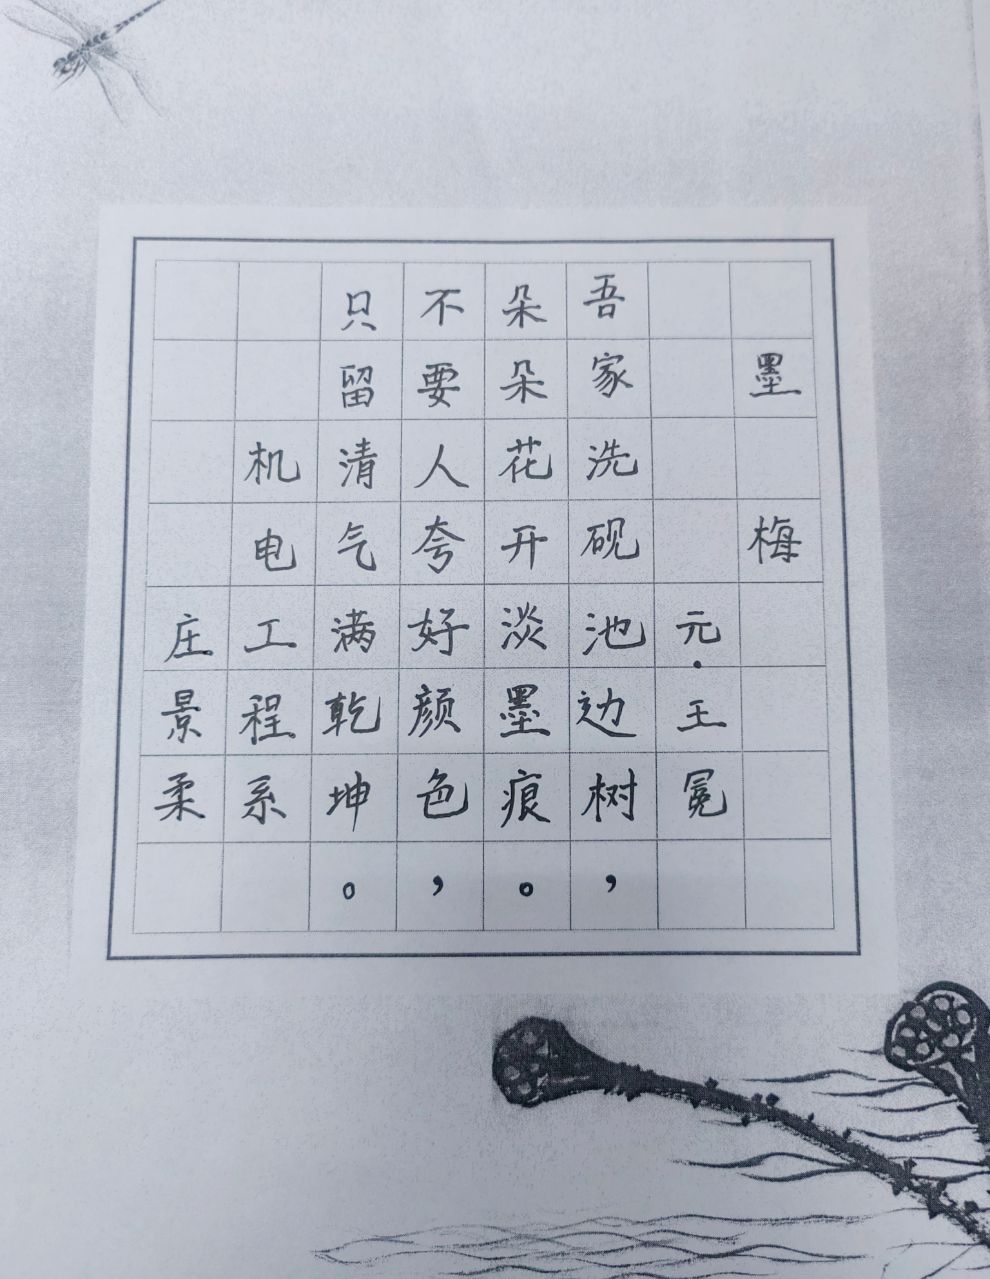 墨梅
元·王冕
吾家洗砚池边树，
朵朵花开淡墨痕。
不要人夸好颜色，
只留清气满乾坤。
机电工程系
庄景柔